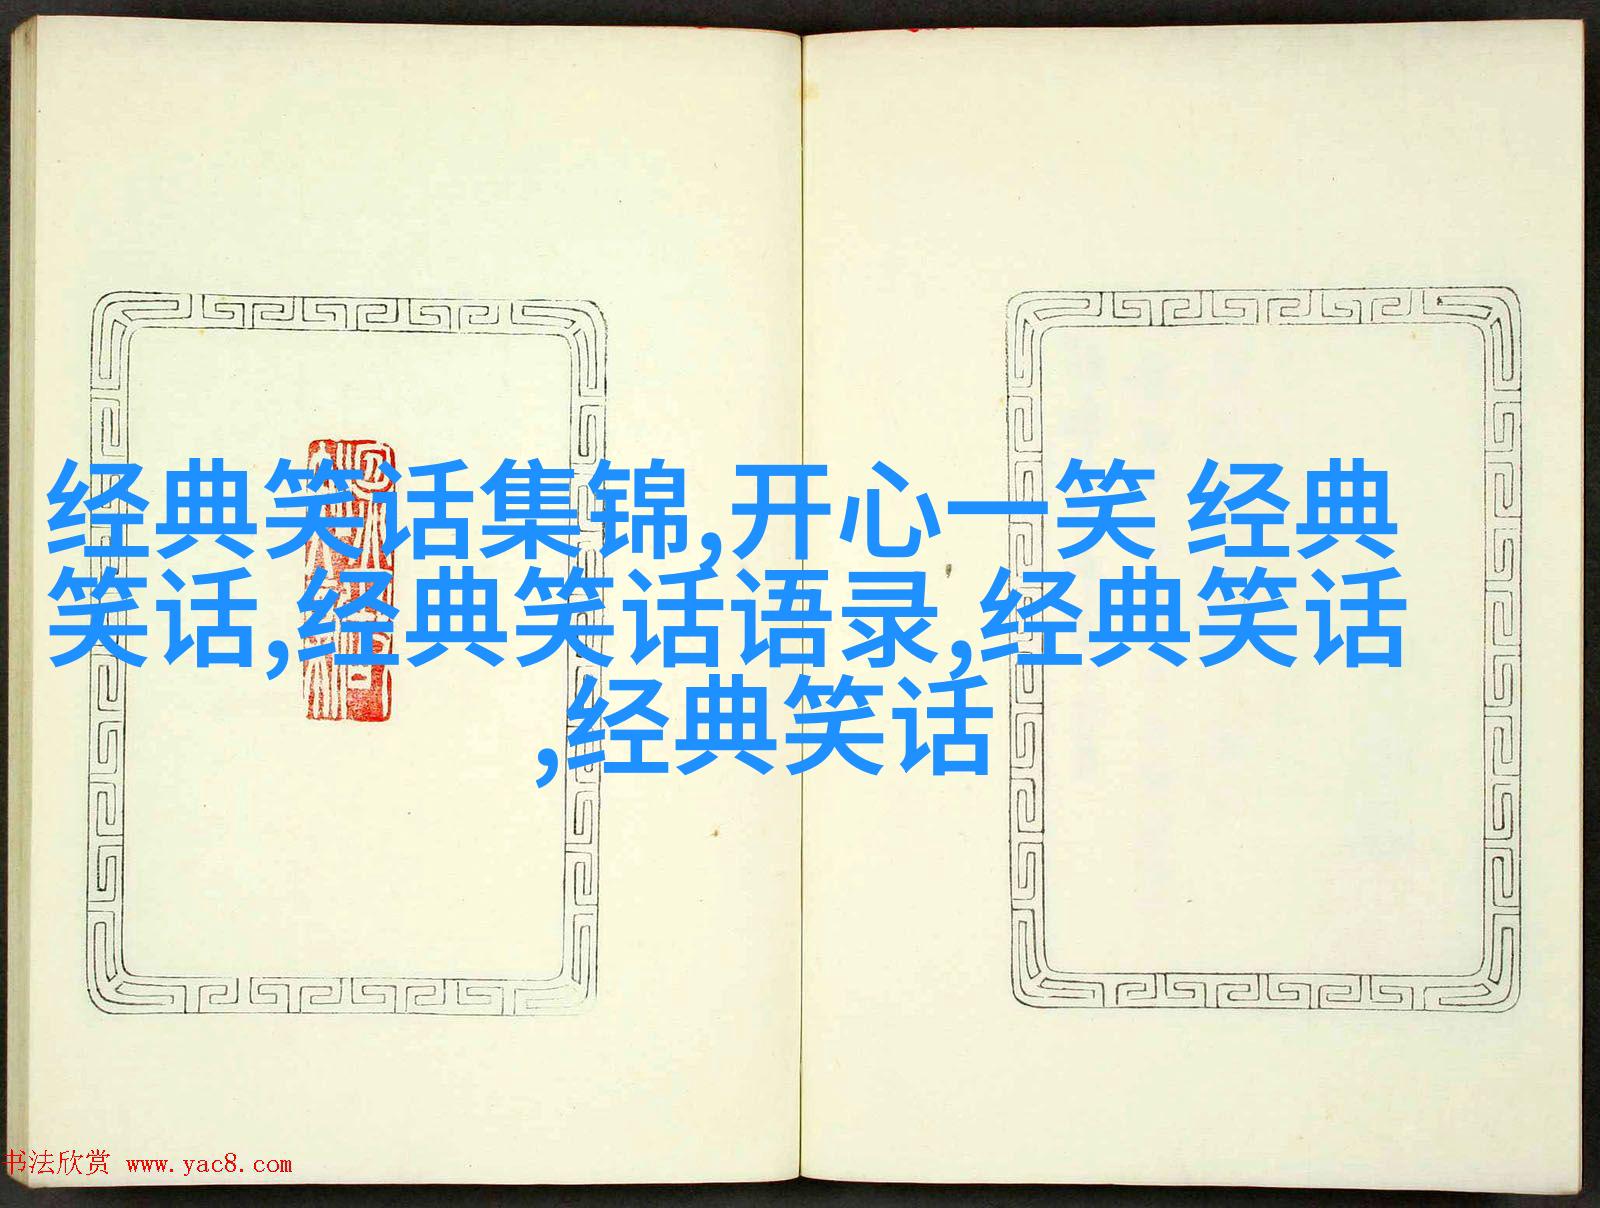 经典笑话集锦,开心一笑 经典
笑话,经典笑话语录,经典笑话
,经典笑话
书法欣赏 www.yac8.com